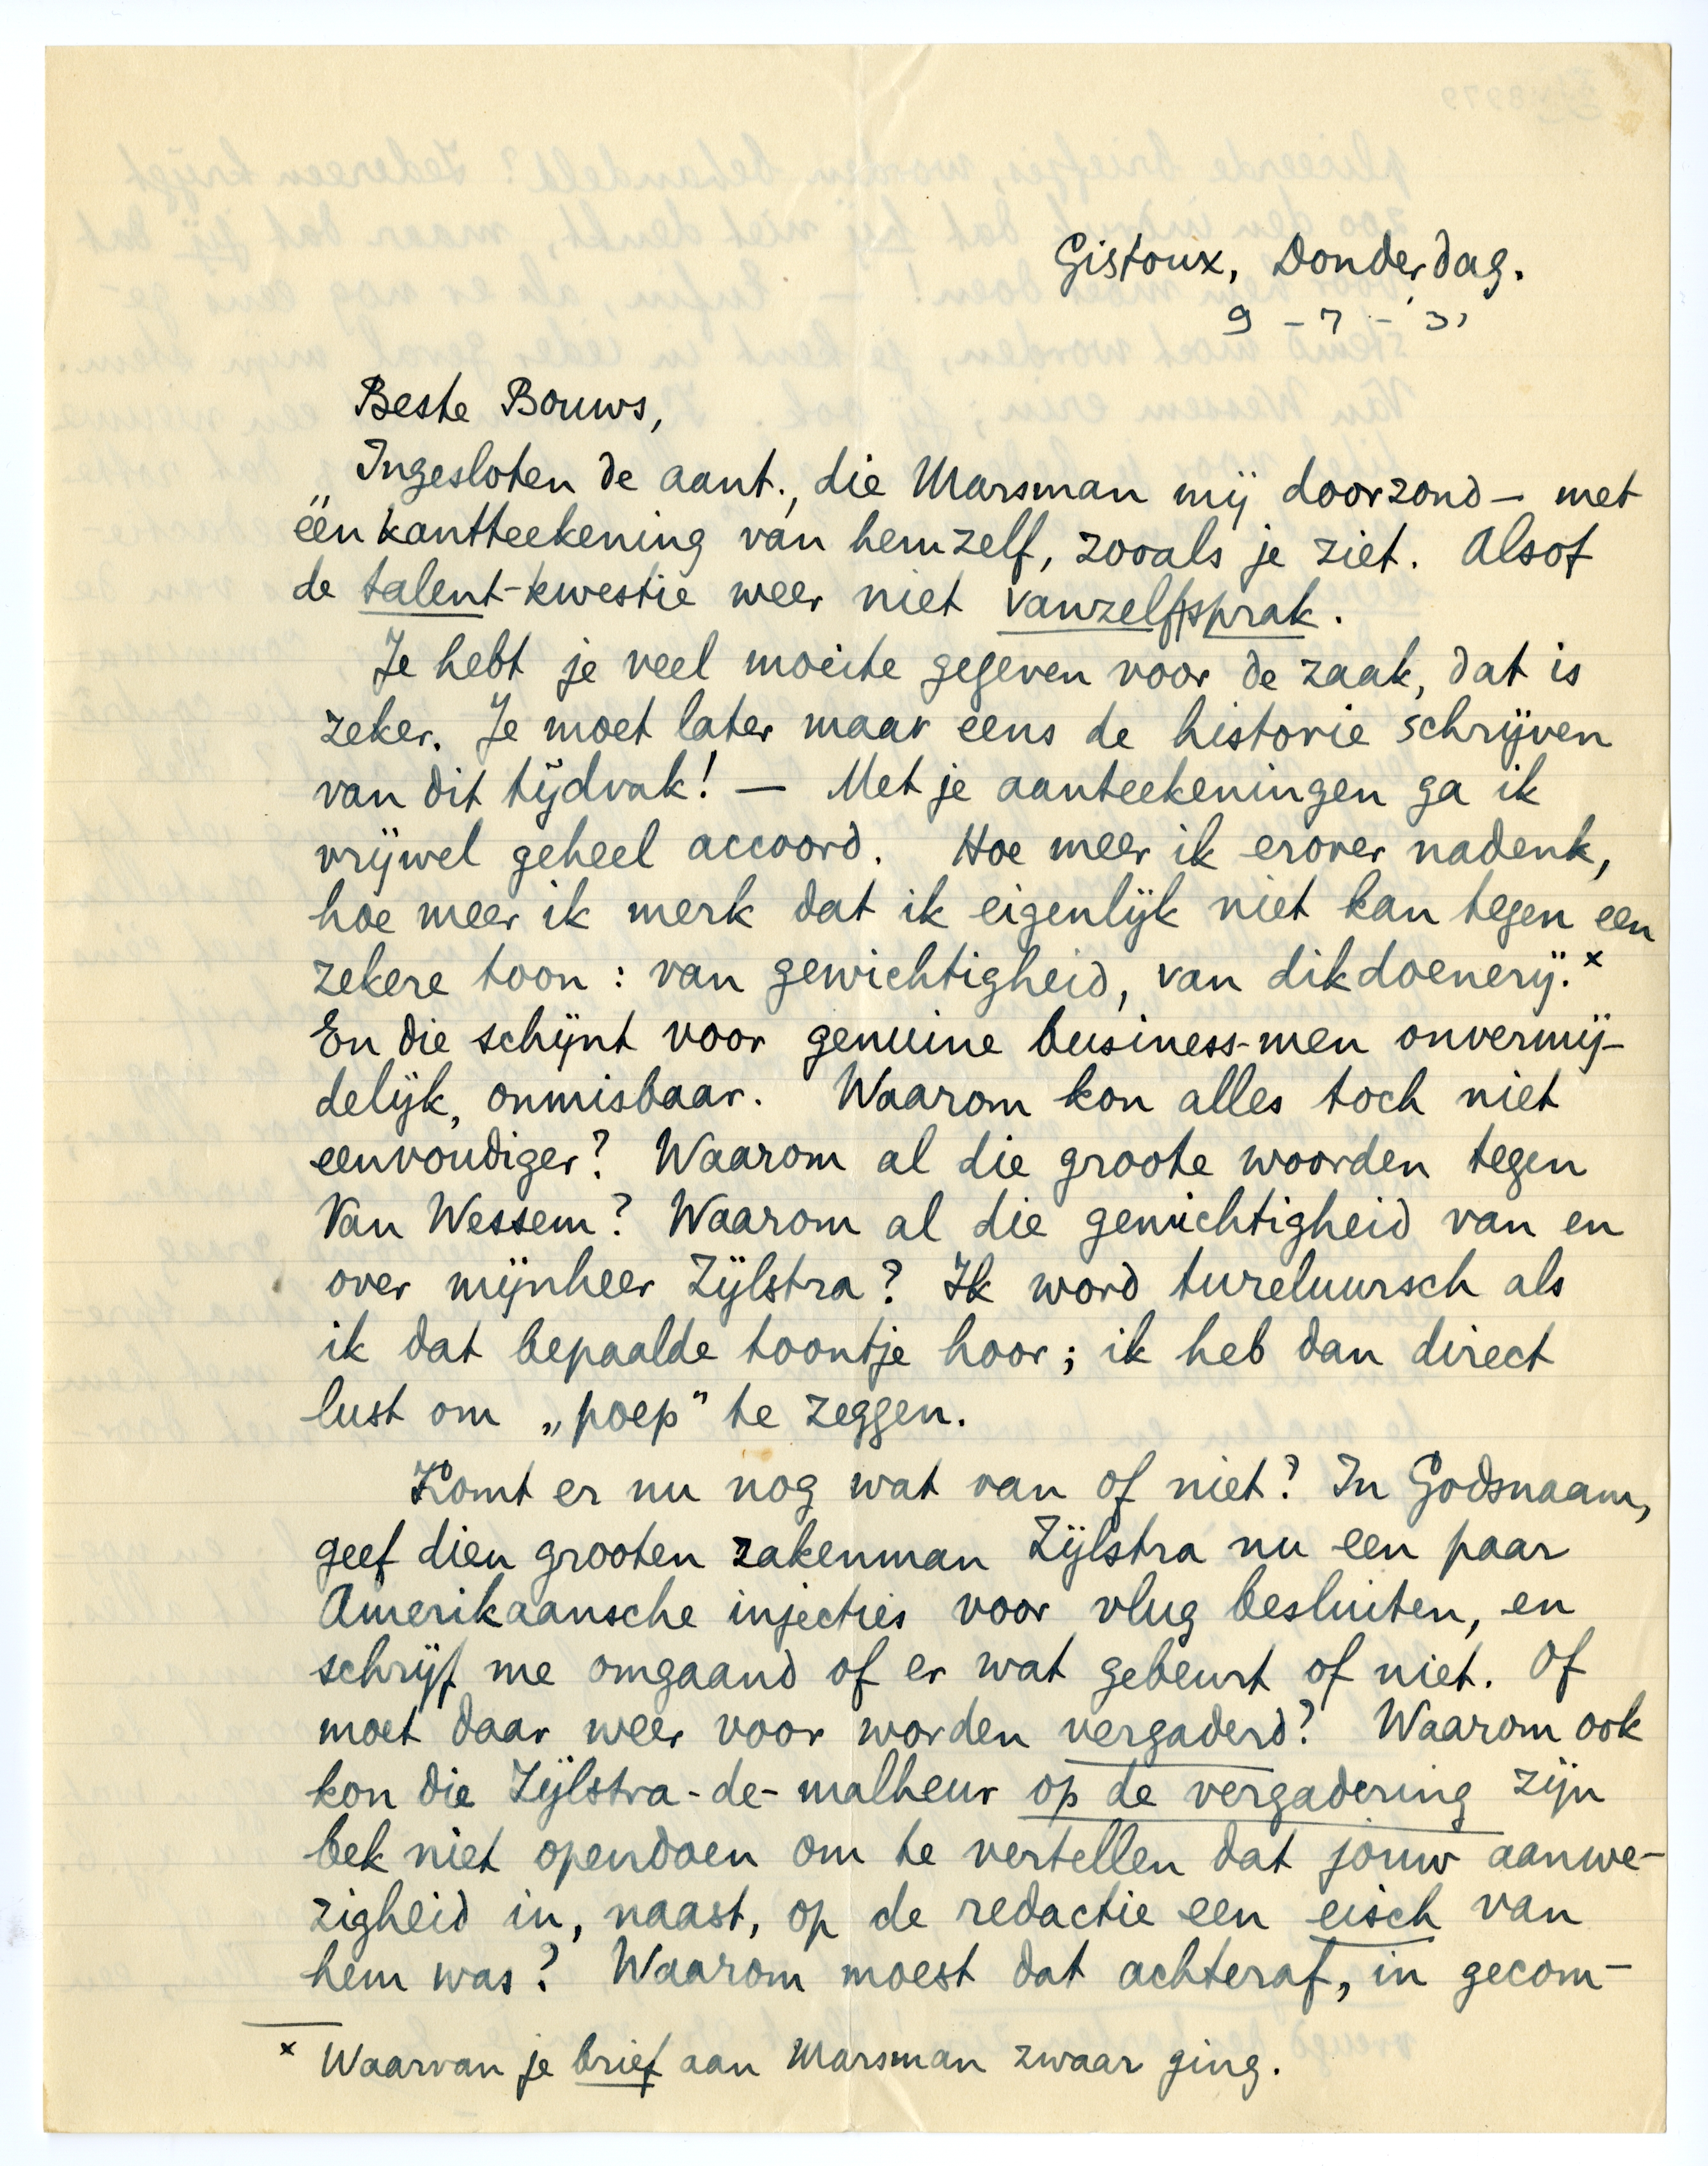 Gistoux, Donderdag.
9 - 7 - '31
Beste Bouws,
Ingesloten de aant., die Marsman mij doorzond — met
één kantteekening van hemzelf, zooals je ziet. Alsof
de talent-kwestie weer niet vanzelfsprak.
Je hebt je veel moeite gegeven voor de zaak, dat is
zeker. Je moet later maar eens de historie schrijven
van dit tijdvak! — Met je aanteekeningen ga ik
vrijwel geheel accoord. Hoe meer ik erover nadenk,
hoe meer ik merk dat ik eigenlijk niet kan tegen een
zekere toon: van gewichtigheid, van dikdoenerij.×
En die schijnt voor genuine business-men onvermij-
delijk, onmisbaar. Waarom kon alles toch niet
eenvoudiger? Waarom al die groote woorden tegen
Van Wessem? Waarom al die gewichtigheid van en
over mijnheer Zijlstra? Ik word tureluursch als
ik dat bepaalde toontje hoor; ik heb dan direct
lust om „poep" te zeggen.
Komt er nu nog wat van of niet? In Godsnaam,
geef dien grooten zakenman Zijlstra nu een paar
Amerikaansche injecties voor vlug besluiten, en
schrijf me omgaand of er wat gebeurt of niet. Of
moet daar weer voor worden vergaderd? Waarom ook
kon die Zijlstra-de-malheur op de vergadering zijn
bek niet opendoen om te vertellen dat jouw aanwe-
zigheid in, naast, op de redactie een eisch van
hem was? Waarom moest dat achteraf, in gecom-
× Waarvan je brief aan Marsman zwaar ging.